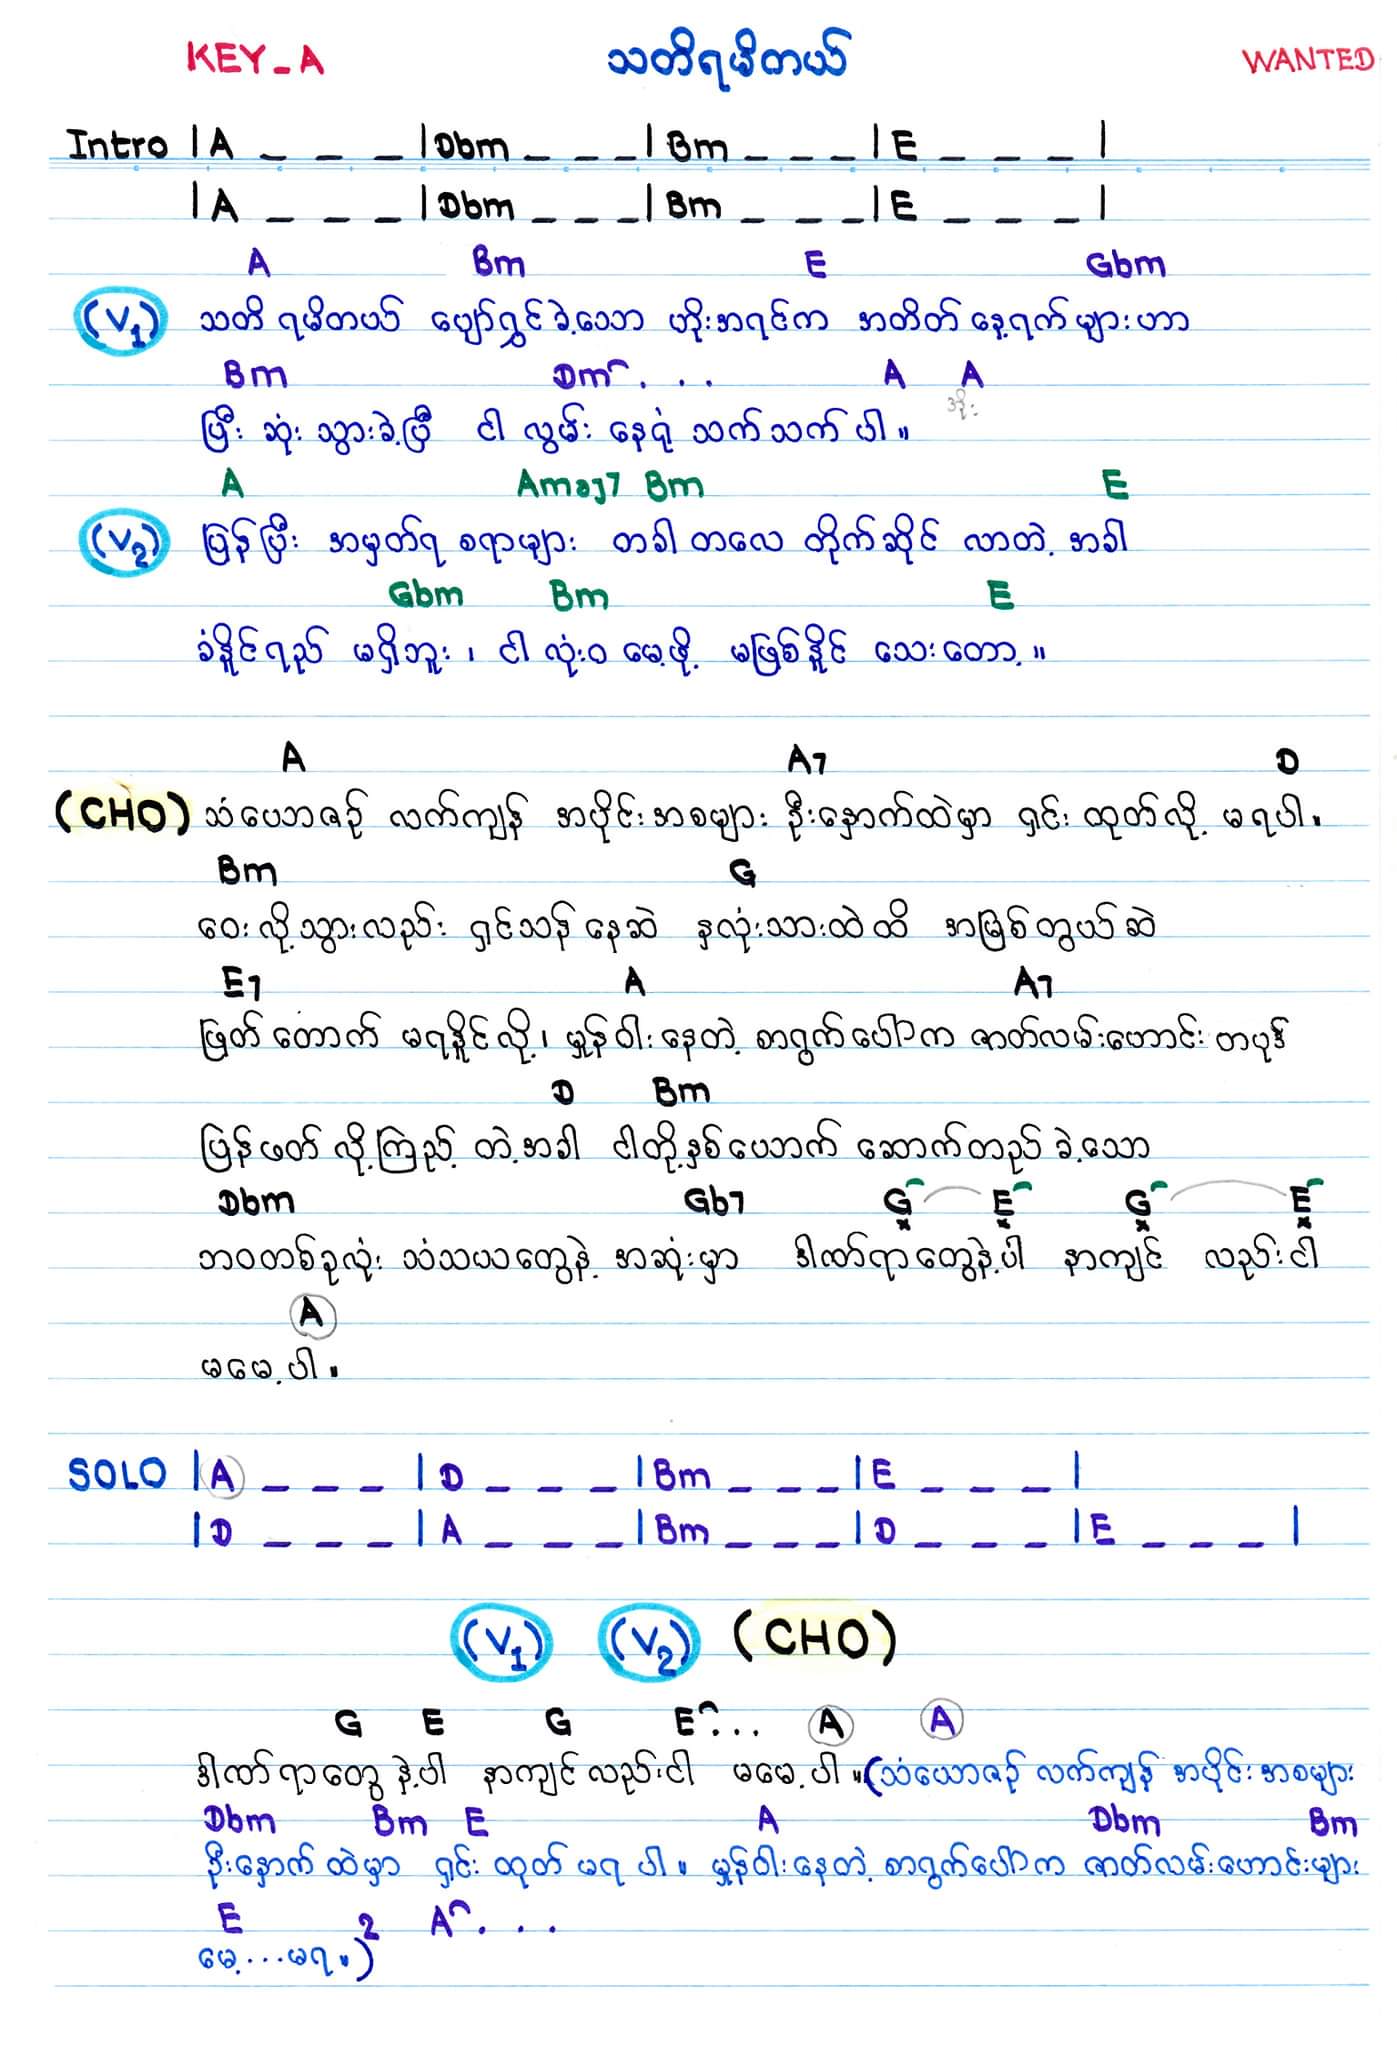 KEY_A သတိရမိတယ် WANTED
Intro |A _ _ _ |Dbm _ _ _ |Bm _ _ _ |E _ _ _ |
|A _ _ _ |Dbm _ _ _ |Bm _ _ _ |E _ _ _ |
A Bm E Gbm
(V1) သတိ ရမိတယ် ပျော်ရွှင်ခဲ့သော ဟိုးအရင်က အတိတ် နေ့ရက်များဟာ
Bm Dm... A A
အိုး
ပြီး ဆုံး သွားခဲ့ပြီ ငါ လွမ်း နေရုံ သက်သက် ပါ။
A Amaj7 Bm E
(V2) ပြန်ပြီး အမှတ်ရ စရာများ တခါ တလေ တိုက်ဆိုင် လာတဲ့ အခါ
Gbm Bm E
ခံနိူင်ရည် မရှိဘူး၊ ငါ လုံးဝ မေ့ဖို့ မဖြစ်နိူင် သေးတော့။
A A7 D
(CHO) သံယောဇဉ် လက်ကျန် အပိုင်းအစများ ဦးနှောက်ထဲမှာ ရှင်း ထုတ်လို့ မရပါ။
Bm G
ဝေးလို့သွားလည်း ရှင်သန်နေဆဲ နှလုံးသားထဲထိ အမြစ်တွယ်ဆဲ
E7 A A7
ဖြတ်တောက် မရနိူင်လို့၊ မှုန်ဝါးနေတဲ့ စာရွက်ပေါ်က ဇာတ်လမ်းဟောင်း တပုဒ်
D Bm
ပြန်ဖတ်လို့ကြည့် တဲ့အခါ ငါတို့နှစ်ယောက် ဆောက်တည်ခဲ့သော
Dbm Gb7 G E G E
ဘဝတစ်ခုလုံး သံသယတွေနဲ့ အဆုံးမှာ ဒါဏ်ရာတွေနဲ့ပါ နာကျင် လည်းငါ
A
မမေ့ပါ။
SOLO |A _ _ _ |D _ _ _ |Bm _ _ _ |E _ _ _ |
|D _ _ _ |A _ _ _ |Bm _ _ _ |D _ _ _ |E _ _ _ |
(V1) (V2) (CHO)
G E G E... A A
ဒါဏ်ရာတွေ နဲ့ပါ နာကျင်လည်းငါ မမေ့ပါ။(သံယောဇဉ် လက်ကျန် အပိုင်းအစများ
Dbm Bm E A Dbm Bm
ဦးနှောက် ထဲမှာ ရှင်း ထုတ် မရ ပါ။ မှုန်ဝါးနေတဲ့ စာရွက်ပေါ်က ဇာတ်လမ်းဟောင်းများ
E 2 A...
မေ့...မရ။)